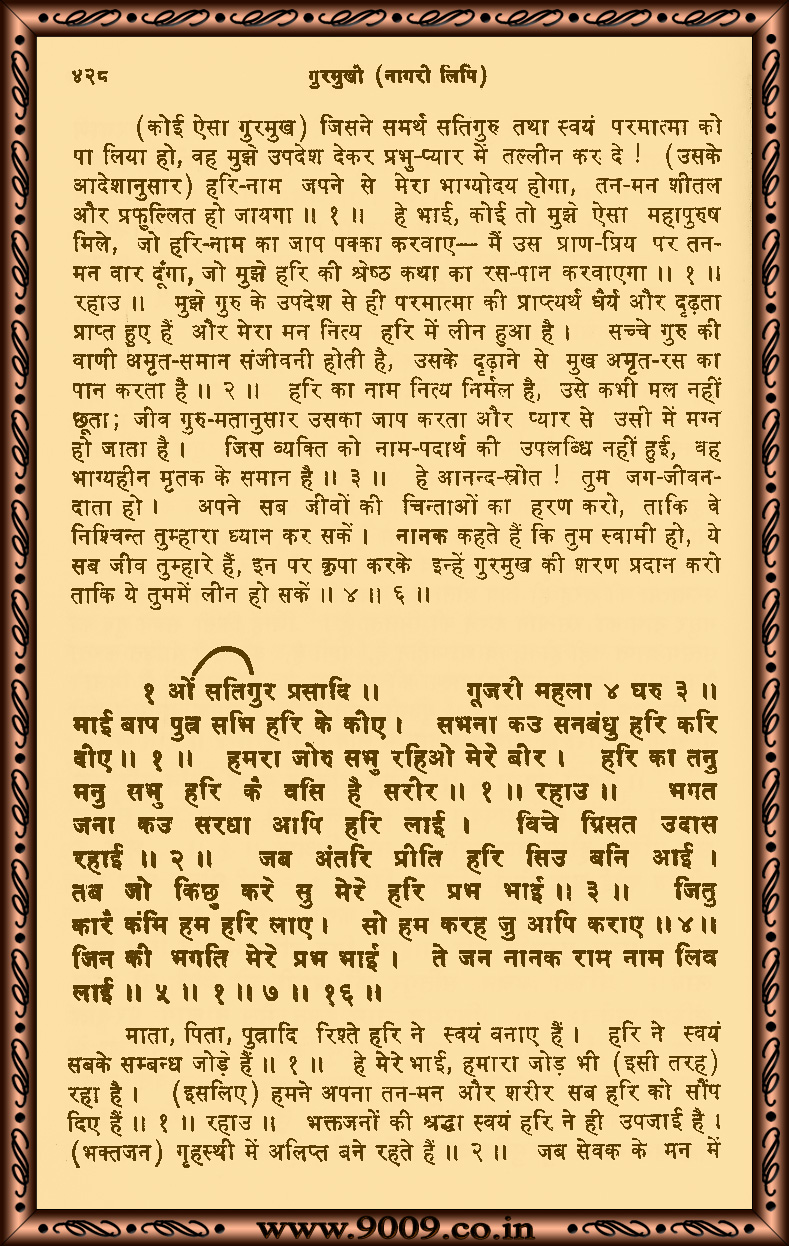 ४२८ गुरमुखी (नागरी लिपि)
(कोई ऐसा गुरमुख) जिसने समर्थ सतिगुरु तथा स्वयं परमात्मा को
पा लिया हो, वह मुझे उपदेश देकर प्रभु-प्यार में तल्लीन कर दे ! (उसके
आदेशानुसार) हरि-नाम जपने से मेरा भाग्योदय होगा, तन-मन शीतल
और प्रफुल्लित हो जायगा ॥ १ ॥ हे भाई, कोई तो मुझे ऐसा महापुरुष
मिले, जो हरि-नाम का जाप पक्का करवाए— मैं उस प्राण-प्रिय पर तन-
मन वार दूँगा, जो मुझे हरि की श्रेष्ठ कथा का रस-पान करवाएगा ॥ १ ॥
रहाउ ॥ मुझे गुरु के उपदेश से ही परमात्मा की प्राप्त्यर्थ धैर्य और दृढ़ता
प्राप्त हुए हैं और मेरा मन नित्य हरि में लीन हुआ है । सच्चे गुरु की
वाणी अमृत-समान संजीवनी होती है, उसके दृढ़ाने से मुख अमृत-रस का
पान करता है ॥ २ ॥ हरि का नाम नित्य निर्मल है, उसे कभी मल नहीं
छूता; जीव गुरु-मतानुसार उसका जाप करता और प्यार से उसी में मग्न
हो जाता है । जिस व्यक्ति को नाम-पदार्थ की उपलब्धि नहीं हुई, वह
भाग्यहीन मृतक के समान है ॥ ३ ॥ हे आनन्द-स्रोत ! तुम जग-जीवन-
दाता हो । अपने सब जीवों की चिन्ताओं का हरण करो, ताकि वे
निश्चिन्त तुम्हारा ध्यान कर सकें । नानक कहते हैं कि तुम स्वामी हो, ये
सब जीव तुम्हारे हैं, इन पर कृपा करके इन्हें गुरमुख की शरण प्रदान करो
ताकि ये तुममें लीन हो सकें ॥ ४ ॥ ६ ॥
१ ओं सतिगुर प्रसादि ॥ गूजरी महला ४ घरु ३ ॥
माई बाप पुत्र सभि हरि के कीए । सभना कउ सनबंधु हरि करि
दीए ॥ १ ॥ हमरा जोरु सभु रहिओ मेरे बीर । हरि का तनु
मनु सभु हरि कै वसि है सरीर ॥ १ ॥ रहाउ ॥ भगत
जना कउ सरधा आपि हरि लाई । विचे ग्रिसत उदास
रहाई ॥ २ ॥ जब अंतरि प्रीति हरि सिउ बनि आई ।
तब जो किछु करे सु मेरे हरि प्रभ भाई ॥ ३ ॥ जितु
कारै कंमि हम हरि लाए । सो हम करह जु आपि कराए ॥४॥
जिन की भगति मेरे प्रभ भाई । ते जन नानक राम नाम लिव
लाई ॥ ५ ॥ १ ॥ ७ ॥ १६ ॥
माता, पिता, पुत्रादि रिश्ते हरि ने स्वयं बनाए हैं । हरि ने स्वयं
सबके सम्बन्ध जोड़े हैं ॥ १ ॥ हे मेरे भाई, हमारा जोड़ भी (इसी तरह)
रहा है । (इसलिए) हमने अपना तन-मन और शरीर सब हरि को सौंप
दिए हैं ॥ १ ॥ रहाउ ॥ भक्तजनों की श्रद्धा स्वयं हरि ने ही उपजाई है ।
(भक्तजन) गृहस्थी में अलिप्त बने रहते हैं ॥ २ ॥ जब सेवक के मन में
www.9009.co.in